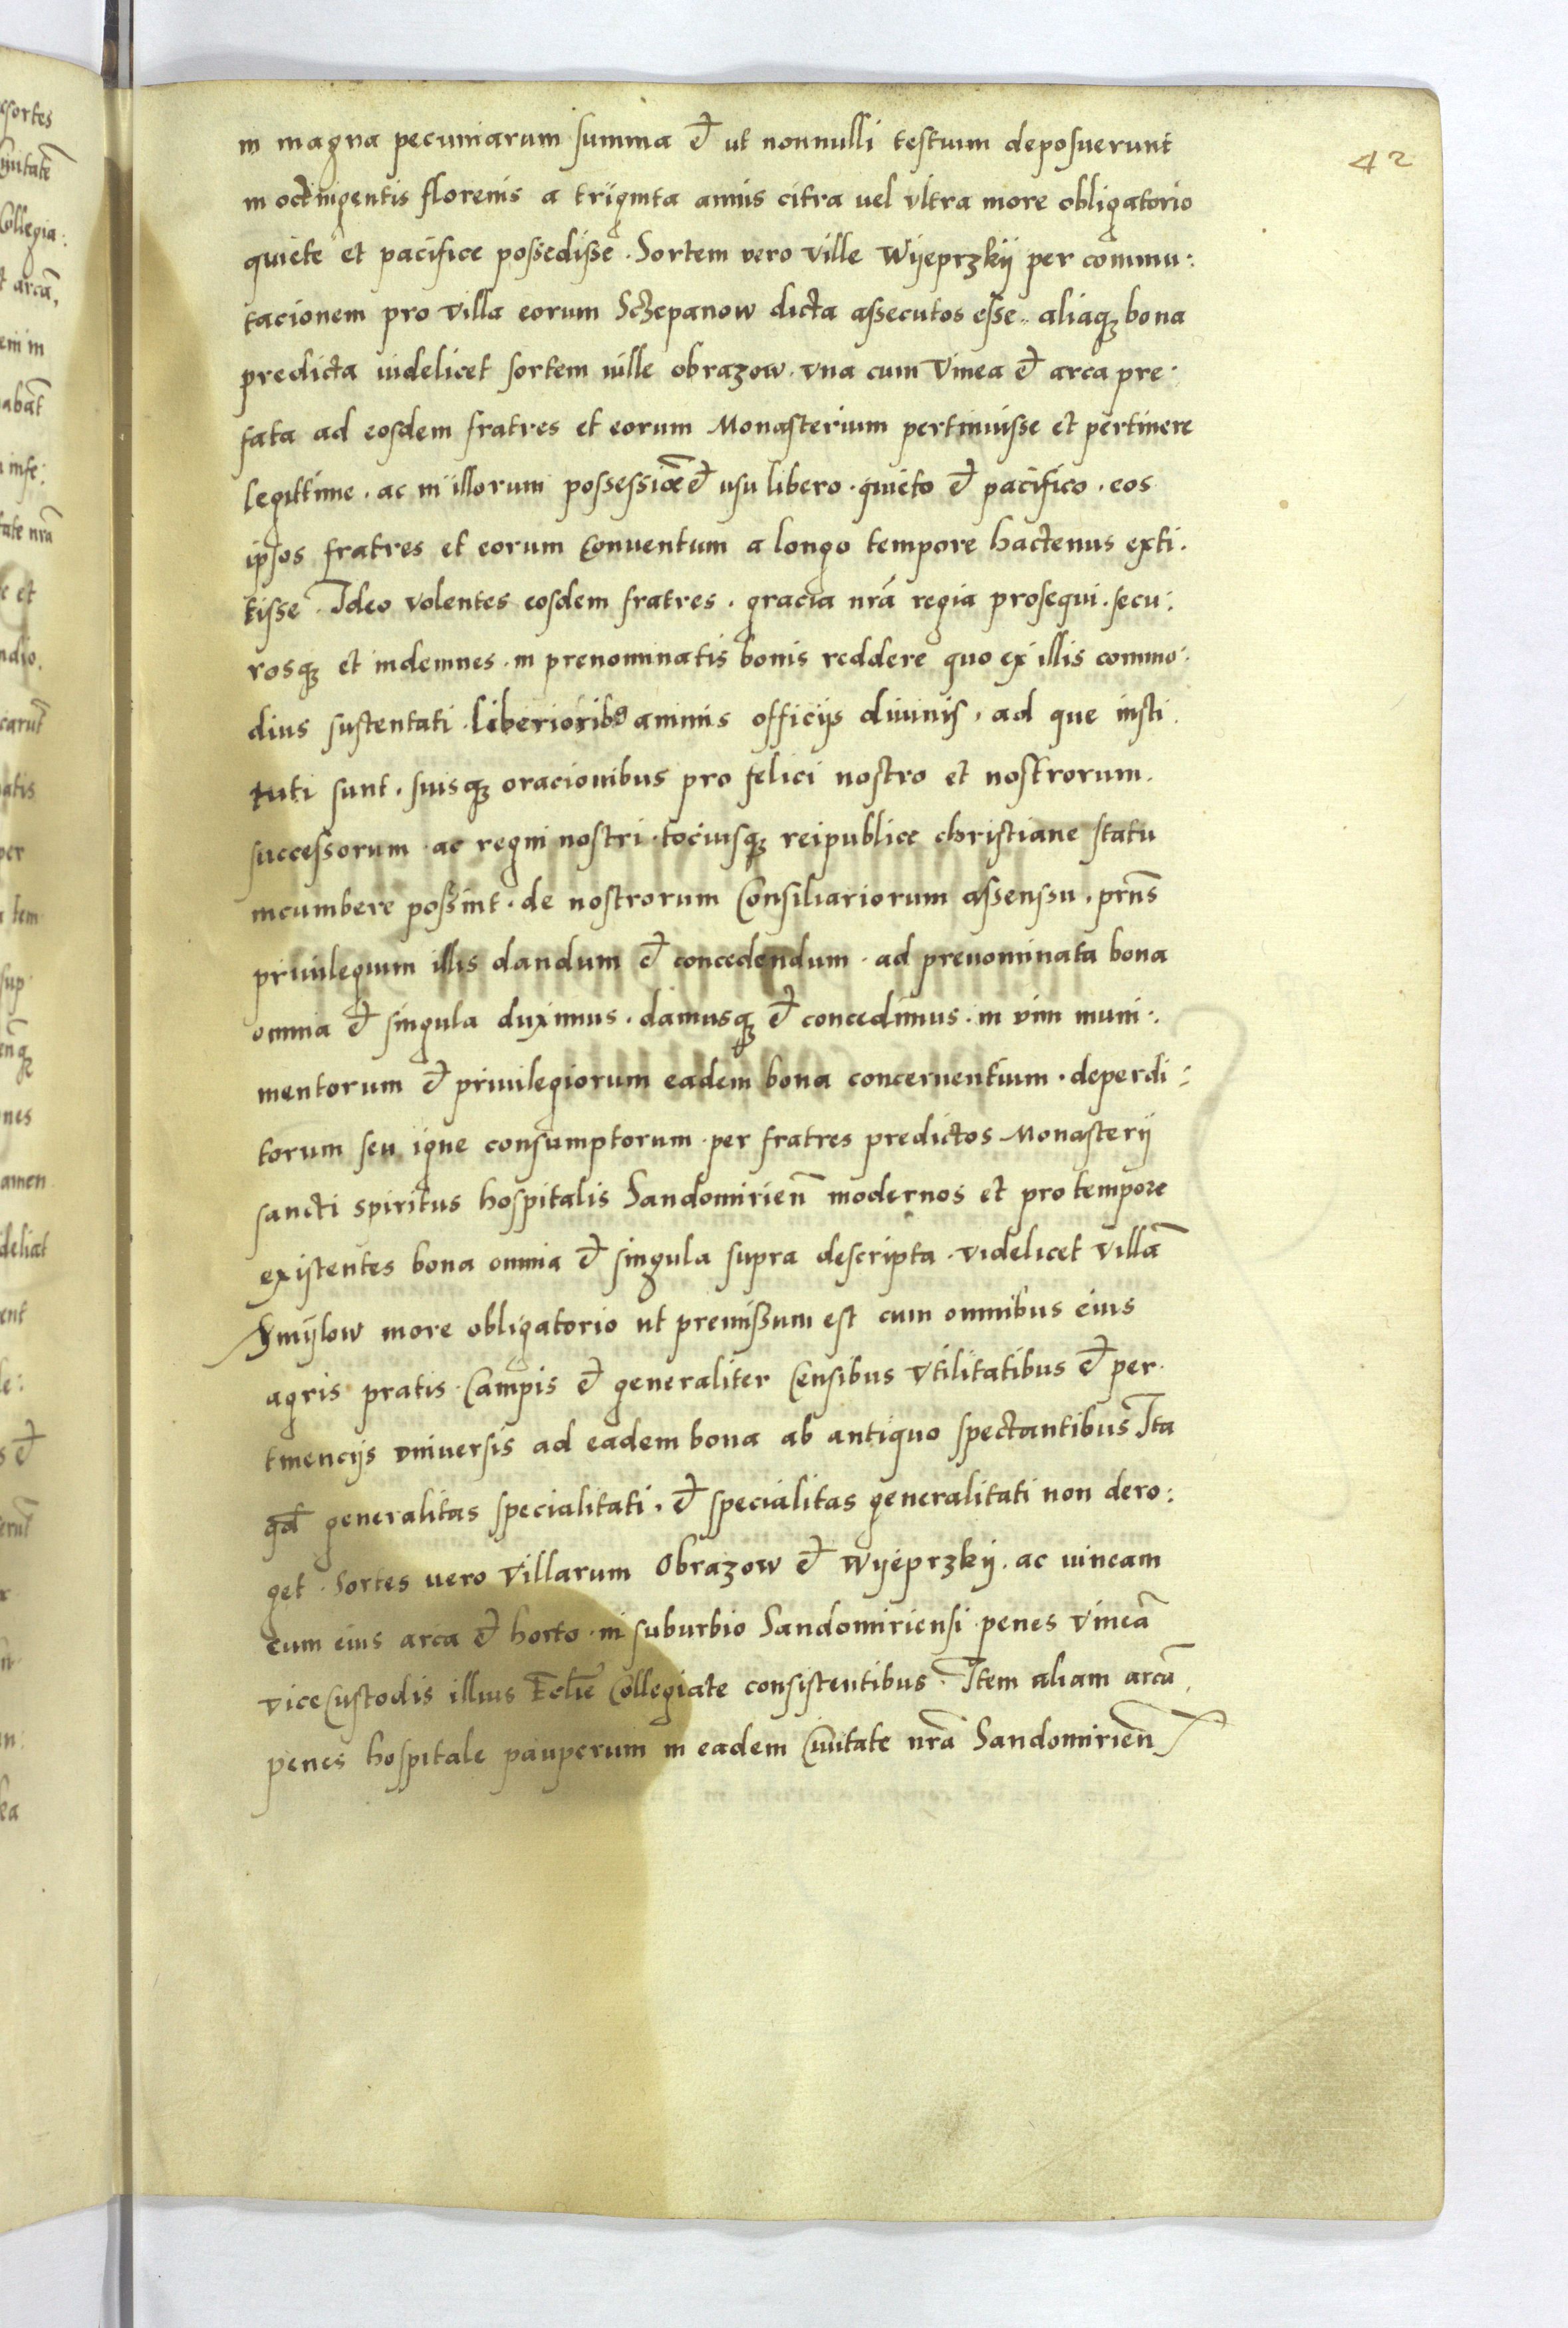 42
in magna pecuniarum summa et ut nonnulli testium deposuerunt
in octingentis florenis a triginta annis citra vel vltra more obligatorio
quiete et pacifice possedisse . Sortem vero ville Wyeprzkij per commu:
tacionem pro villa eorum Sczepanow dicta assecutos esse . aliaqȝ bona
predicta videlicet sortem ville obrazow . vna cum Vinea et arca pre:
fata ad eosdem fratres et eorum Monasterium pertinuisse et pertinere
legittime . ac in illorum possessiōe et usu libero . quieto et pacifico . eos
ipsos fratres et eorum conuentum a longo tempore hactenus exti.
tisse . Ideo volentes eosdem fratres . gracia nrā regia prosequi . secu:
rosqȝ et indemnes . in prenominatis bonis reddere quo ex illis commo:
dius sustentati . liberioribꝰ animis officijs diuinis , ad que insti.
tuti sunt . suisqȝ oracionibus pro felici nostro et nostrorum .
successorum . ac regni nostri . tociusqȝ reipublice christiane statu
incumbere possint . de nostrorum Consiliariorum assenssu . prn̄s
priuilegium illis dandum et concedendum . ad prenominata bona
omnia et singula duximus . damusqȝ et concedimus . in vim muni:
mentorum et priuilegiorum eadem bona concernentium . deperdi:
torum seu igne consumptorum . per fratres predictos Monasterij
sancti spiritus hospitalis Sandomirien̄ modernos et pro tempore
existentes bona omnia et singula supra descripta . videlicet villā
Smijlow more obligatorio ut premissum est cum omnibus eius
agris pratis . Campis et generaliter Censibus Vtilitatibus et per.
tinencijs vniversis ad eadem bona ab antiquo spectantibus Ita
qđ generalitas specialitati . et specialitas generalitati non dero:
get . Sortes vero Villarum Obrazow et Wyeprzkij . ac vineam
cum eius arca et horto . in suburbio Sandomiriensi . penes vineā
viceCustodis illius Eccl̄ie Collegiate consistentibus . Item aliam arcā,
penes hospitale pauperum in eadem Ciuitate nrā Sandomirien̄